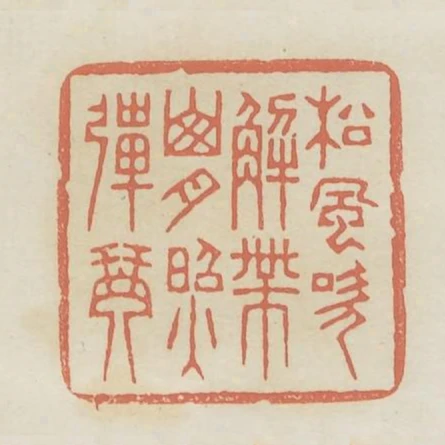 松風吹
解帶
山月照
彈琴